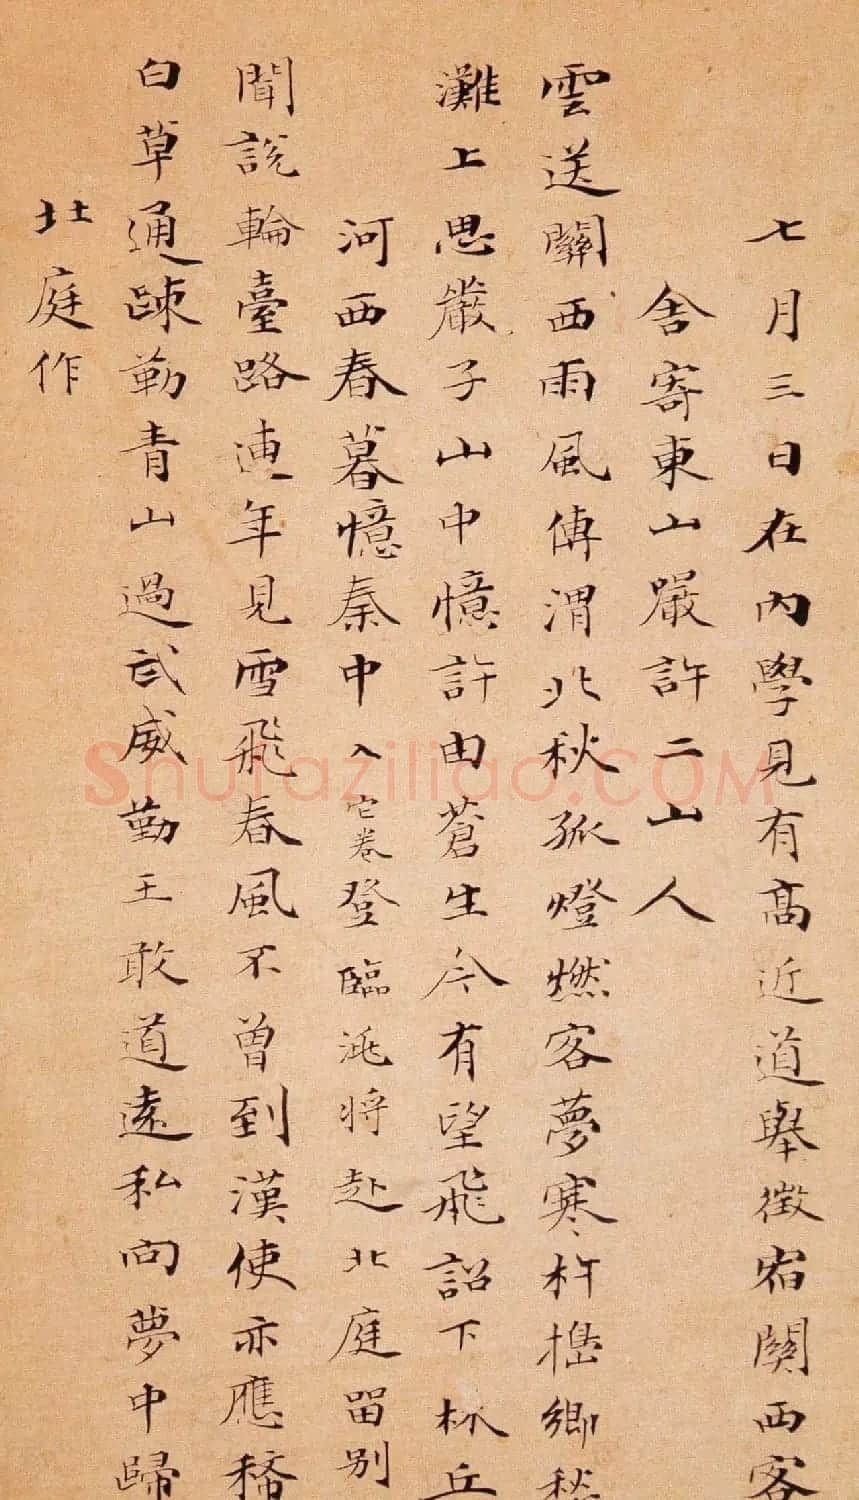 七月三日在內學見有高近道舉徵宿關西客
舍寄東山嚴許二山人
雲送關西雨風傳渭北秋孤燈燃客夢寒杵搗鄉愁
灘上思嚴子山中憶許由蒼生今有望飛詔下林丘
河西春暮憶秦中入它卷登臨洮將赴北庭留別
聞說輪臺路連年見雪飛春風不曾到漢使亦應稀
白草通疎勒青山過武威勤王敢道遠私向夢中歸
北庭作
Shufaziliao.COM